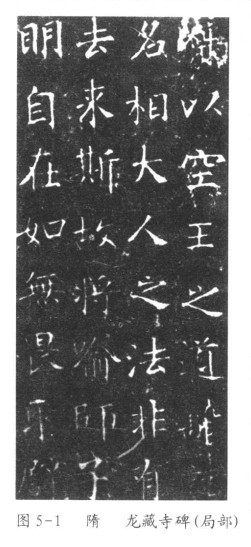 竊以空王之道離諸
名相大人之法非有
去來斯故將喻師子
明自在如無畏取譬
图5-1 隋 龙藏寺碑(局部)